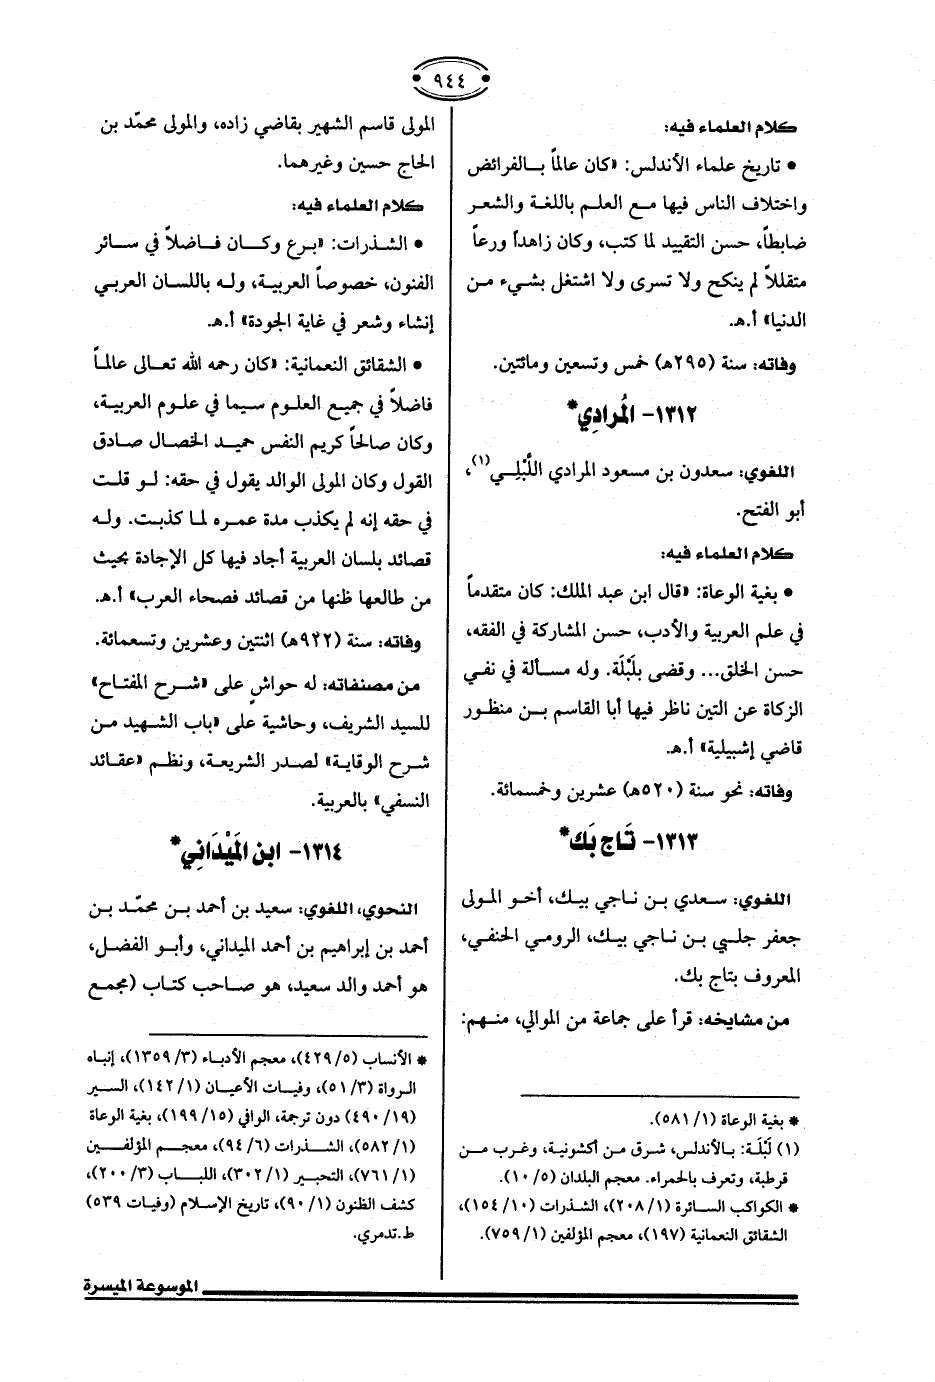 ٩٤٤
كلام العلماء فيه:
• تاريخ علماء الأندلس: «كان عالماً بالفرائض
واختلاف الناس فيها مع العلم باللغة والشعر
ضابطاً، حسن التقييد لما كتب، وكان زاهداً ورعاً
متقللاً لم ينكح ولا تسرى ولا اشتغل بشيء من
الدنيا» أ.هـ.
وفاته: سنة (٢٩٥هـ) خمس وتسعين ومائتين.
١٣١٢- المُرادِي*
اللغوي: سعدون بن مسعود المرادي اللَّبْلِي(١)،
أبو الفتح.
كلام العلماء فيه:
• بغية الوعاة: «قال ابن عبد الملك: كان متقدماً
في علم العربية والأدب، حسن المشاركة في الفقه،
حسن الخلق... وقضى بلَبْلَة. وله مسألة في نفي
الزكاة عن التين ناظر فيها أبا القاسم بن منظور
قاضي إشبيلية» أ.هـ.
وفاته: نحو سنة (٥٢٠هـ) عشرين وخمسمائة.
١٣١٣- تَاج بَك*
اللغوي: سعدي بن ناجي بيك، أخو المولى
جعفر جلبي بن ناجي بيك، الرومي الحنفي،
المعروف بتاج بك.
من مشايخه: قرأ على جماعة من الموالي، منهم:
* بغية الوعاة (١/ ٥٨١).
(١) لَبْلَة: بالأندلس، شرق من أكشونية، وغرب من
قرطبة، وتعرف بالحمراء. معجم البلدان (٥/ ١٠).
* الكواكب السائرة (١/ ٢٠٨)، الشذرات (١٠/ ١٥٤)،
الشقائق النعمانية (١٩٧)، معجم المؤلفين (١/ ٧٥٩).
المولى قاسم الشهير بقاضي زاده، والمولى محمّد بن
الحاج حسين وغيرهما.
كلام العلماء فيه:
• الشذرات: «برع وكان فاضلاً في سائر
الفنون، خصوصاً العربية، وله باللسان العربي
إنشاء وشعر في غاية الجودة» أ.هـ.
• الشقائق النعمانية: «كان رحمه الله تعالى عالماً
فاضلاً في جميع العلوم سيما في علوم العربية،
وكان صالحاً كريم النفس حميد الخصال صادق
القول وكان المولى الوالد يقول في حقه: لو قلت
في حقه إنه لم يكذب مدة عمره لما كذبت. وله
قصائد بلسان العربية أجاد فيها كل الإجادة بحيث
من طالعها ظنها من قصائد فصحاء العرب» أ.هـ.
وفاته: سنة (٩٢٢هـ) اثنتين وعشرين وتسعمائة.
من مصنفاته: له حواشٍ على «شرح المفتاح»
للسيد الشريف، وحاشية على «باب الشهيد من
شرح الوقاية» لصدر الشريعة، ونظم «عقائد
النسفي» بالعربية.
١٣١٤- ابن المَيْدَانِي*
النحوي، اللغوي: سعيد بن أحمد بن محمّد بن
أحمد بن إبراهيم بن أحمد الميداني، وأبو الفضل،
هو أحمد والد سعيد، هو صاحب كتاب (مجمع
* الأنساب (٥/ ٤٢٩)، معجم الأدباء (٣/ ١٣٥٩)، إنباه
الرواة (٣/ ٥١)، وفيات الأعيان (١/ ١٤٢)، السير
(١٩/ ٤٩٠) دون ترجمة، الوافي (١٥/ ١٩٩)، بغية الوعاة
(١/ ٥٨٢)، الشذرات (٦/ ٩٤)، معجم المؤلفين
(١/ ٧٦١)، التحبير (١/ ٣٠٢)، اللباب (٣/ ٢٠٠)،
كشف الظنون (١/ ٩٠)، تاريخ الإسلام (وفيات ٥٣٩)
ط.تدمري.
الموسوعة الميسرة